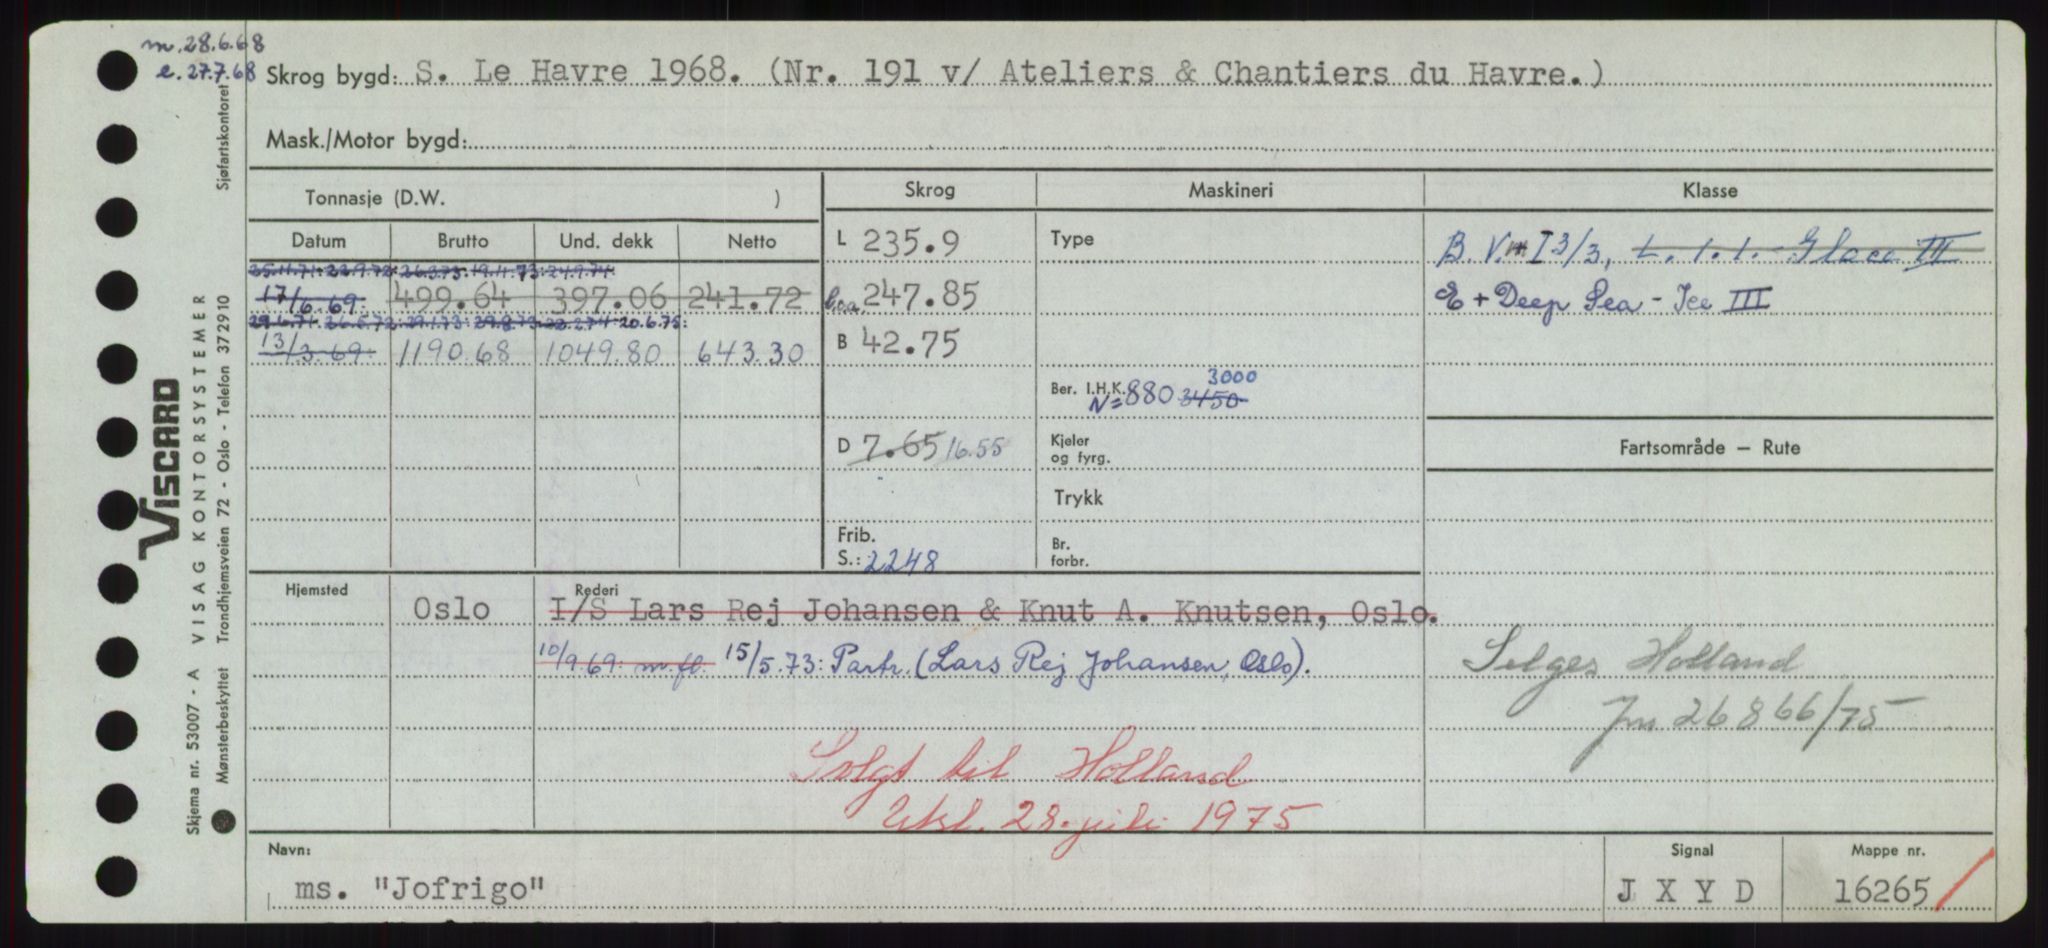 m. 28.6.68
e. 27.7.68
Skrog bygd: S. Le Havre 1968. (Nr. 191 v/ Ateliers & Chantiers du Havre.)
Mask./Motor bygd:
Tonnasje (D.W. )
Datum Brutto Und. dekk Netto
25.11.71: 22.9.72: 26.3.73: 19.11.73: 24.9.74
17/6.69. 499.64 397.06 241.72
29.6.71: 26.5.72: 29.1.73: 29.8.73: 22.2.74: 20.6.75:
13/3.69. 1190.68 1049.80 643.30
Skrog
L 235.9
loa 247.85
B 42.75
D 7.65 16.55
Frib.
S.: 2248
Maskineri
Type
Ber. I.H.K. 3000
N= 880 3450
Kjeler
og fyrg.
Trykk
Br.
forbr.
Klasse
B. V. I 3/3, L. 1. 1. - Glace III
E + Deep Sea - Ice III
Fartsområde — Rute
Selges Holland
Jnr 26866/75
Hjemsted Oslo
Rederi
I/S Lars Rej Johansen & Knut A. Knutsen, Oslo.
10/9.69: m.fl. 15/5.73: Partr. (Lars Rej Johansen, Oslo).
Solgt til Holland
Utsl. 28. juli 1975
Navn:
ms. "Jofrigo"
Signal
J X Y D
Mappe nr.
16265
VISCARD
Skjema nr. 53007 - A VISAG KONTORSYSTEMER
Mønsterbeskyttet Trondhjemsveien 72 - Oslo - Telefon 372910
Sjøfartskontoret